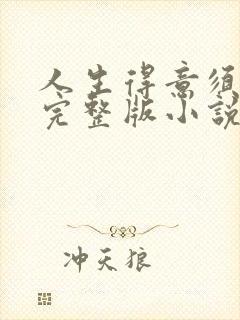 人生得意须
完整版小説
冲天狼